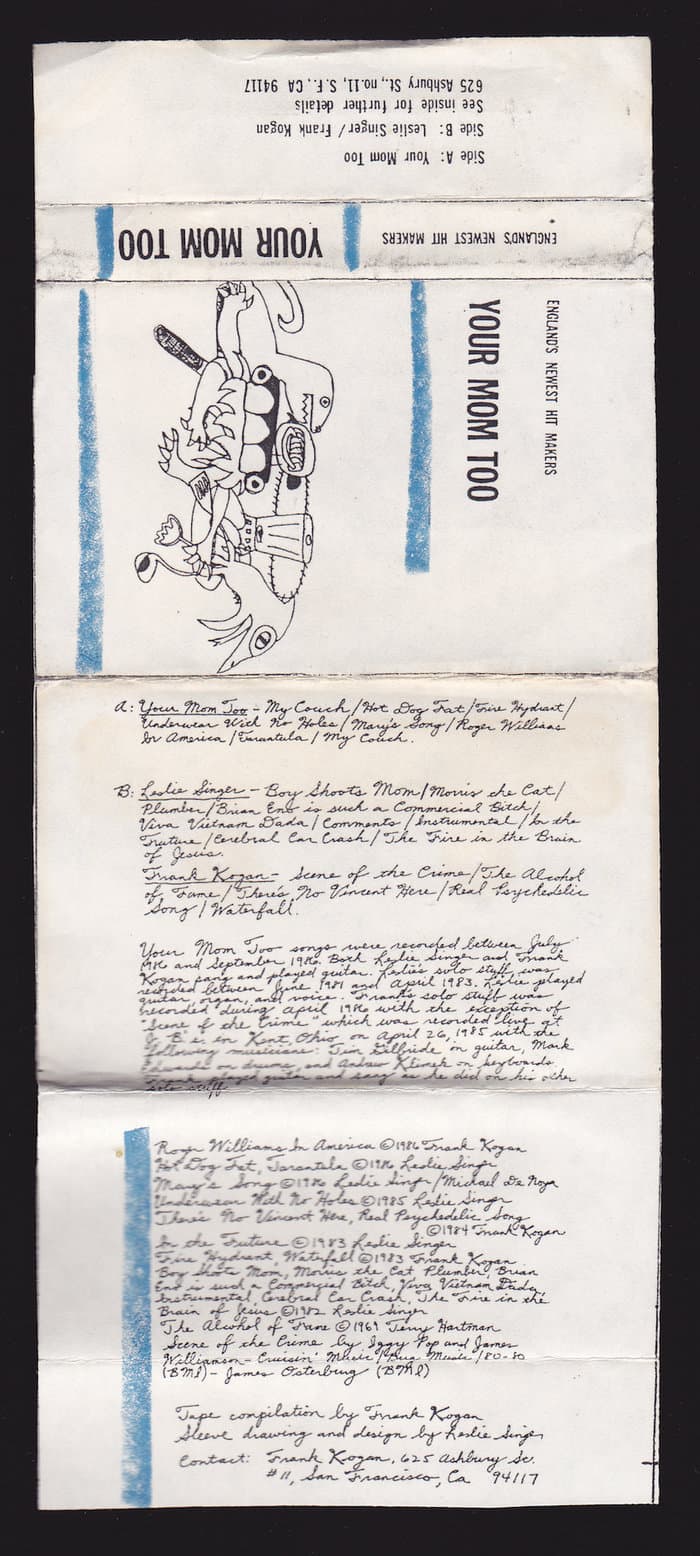 Side A: Your Mom Too
Side B: Leslie Singer/Frank Kogan
See inside for further details
625 Ashbury St., no.11, S.F., CA 94117
ENGLAND'S NEWEST HIT MAKERS
YOUR MOM TOO
ENGLAND'S NEWEST HIT MAKERS
YOUR MOM TOO
A: Your Mom Too - My Couch/Hot Dog Fat/Fire Hydrant/
Underwear With No Holes/Mary's Song/Roger Williams
In America/Tarantula/My Couch.
B: Leslie Singer - Boy Shoots Mom/Morris the Cat/
Plumber/Brian Eno is such a Commercial Bitch/
Viva Vietnam Dada/Comments/Instrumental/In the
Future/Cerebral Car Crash/The Fire in the Brain
of Jesus.
Frank Kogan - Scene of the Crime/The Alcohol
of Fame/There's No Vincent Here/Real Psychedelic
Song/Waterfall.
Your Mom Too songs were recorded between July
1986 and September 1986. Both Leslie Singer and Frank
Kogan sang and played guitar. Leslie's solo stuff was
recorded between June 1981 and April 1983. Leslie played
guitar, organ, and voice. Frank's solo stuff was
recorded during April 1986 with the exception of
"Scene of the Crime" which was recorded live at
J. B.'s in Kent, Ohio on April 26, 1985 with the
following musicians: Jim on guitar, Mark
Edwards on drums, and Andrew Klimek on keyboards.
Frank played guitar and sang as he did on his other
solo stuff.
Roger Williams In America ©1986 Frank Kogan
Hot Dog Fat, Tarantula ©1986 Leslie Singer
Mary's Song ©1986 Leslie Singer/Michael De
Underwear With No Holes ©1985 Leslie Singer
There's No Vincent Here, Real Psychedelic Song
©1984 Frank Kogan
In the Future ©1983 Leslie Singer
Fire Hydrant, Waterfall ©1983 Frank Kogan
Boy Shoots Mom, Morris the Cat Plumber, Brian
Eno is such a Commercial Bitch, Viva Vietnam Dada,
Instrumental, Cerebral Car Crash, The Fire in the
Brain of Jesus ©1982 Leslie Singer
The Alcohol of Fame ©1969 Terry Hartman
Scene of the Crime by Iggy Pop and James
Williamson - Cruisin' Music/Bug Music/80-80
(BMI) - James Osterburg (BMI)
Tape compilation by Frank Kogan
Sleeve drawing and design by Leslie Singer
Contact: Frank Kogan, 625 Ashbury St.
#11, San Francisco, Ca 94117